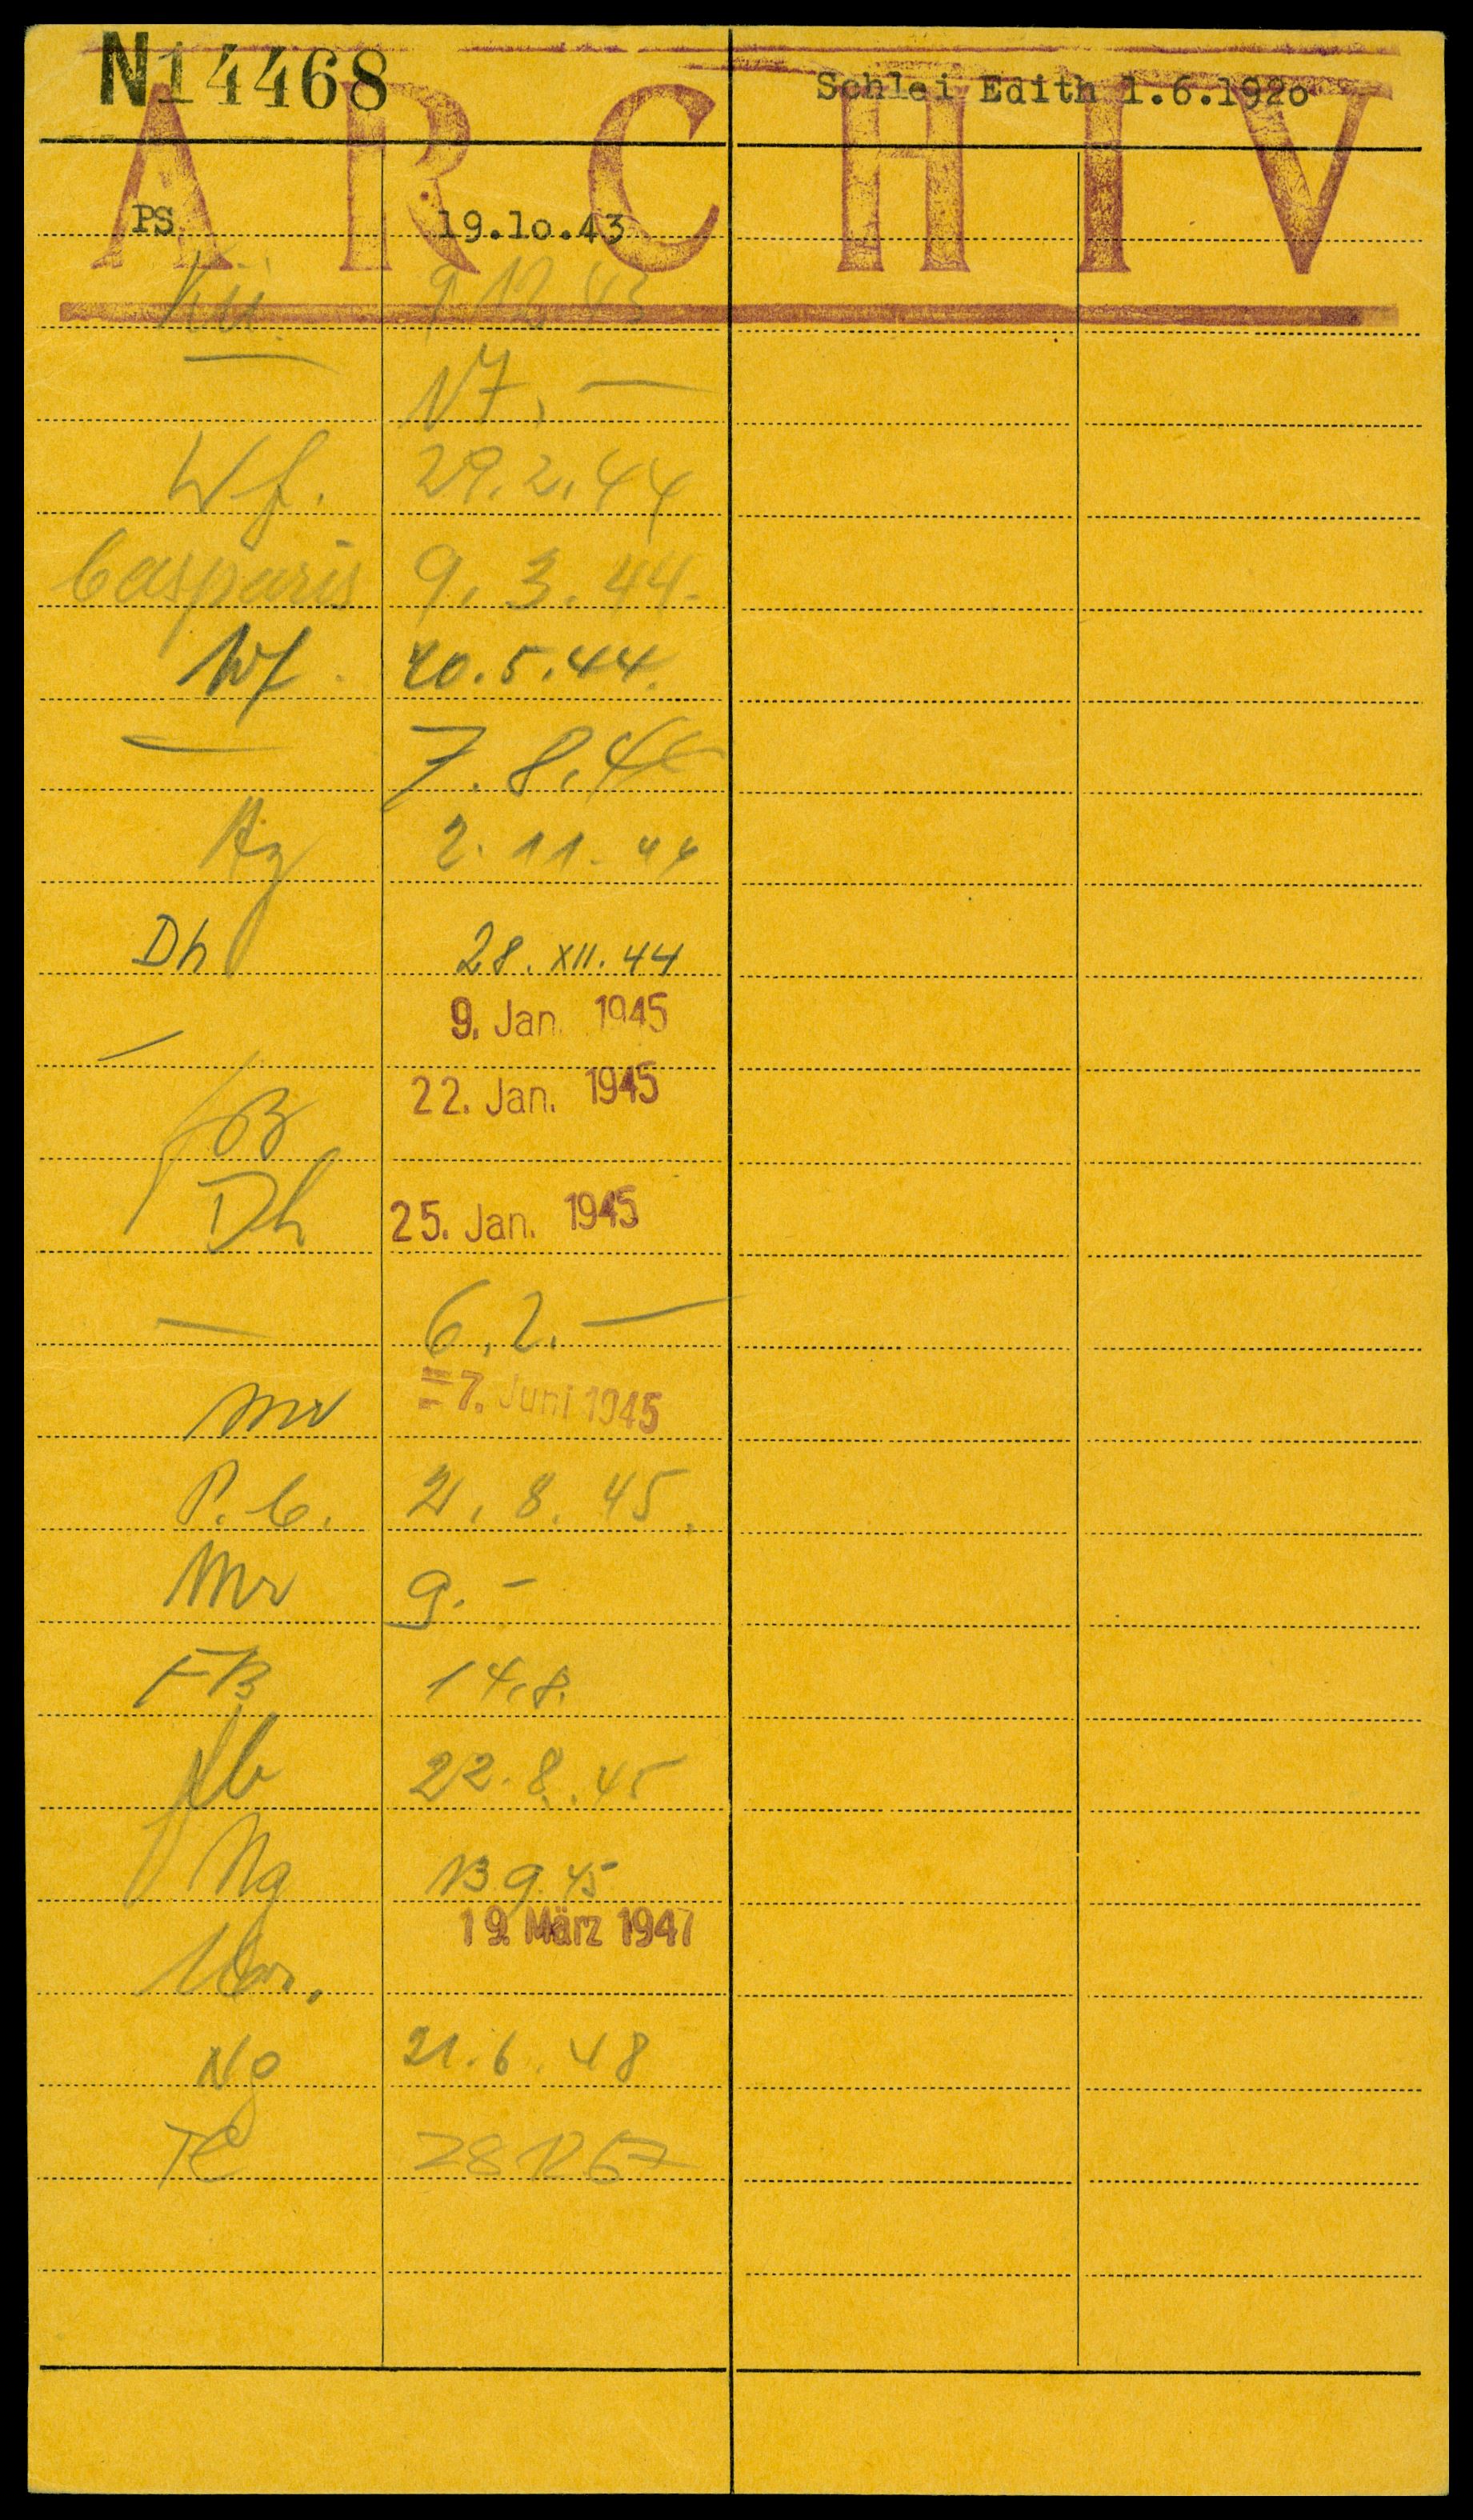 N14468
Schlei Edith 1.6.1920
ARCHIV
PS. 19.10.43
Kü. 9.12.43
17. —
Wf. 29.2.44
Casparis 9.3.44.
Wf. 20.5.44.
— 7.8.44
Az 2.11.44
Dh 28.XII.44
— 9. Jan. 1945
B 22. Jan. 1945
Dh 25. Jan. 1945
— 6.2. —
Mr = 7. Juni 1945
P.C. 21.8.45.
Mr 9. -
FB 14.8.
22.8.45
Ng 13 9.45
19. März 1947
Ng 21.6.48
TC 281267